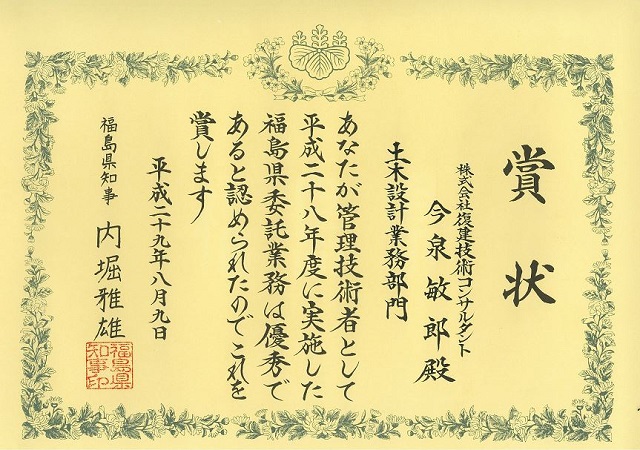 賞状
株式会社復建技術コンサルタント
今泉敏郎殿
土木設計業務部門
あなたが管理技術者として
平成二十八年度に実施した
福島県委託業務は優秀で
あると認められたのでこれを
賞します
平成二十九年八月九日
福島県知事 内堀雅雄
福島県知事印